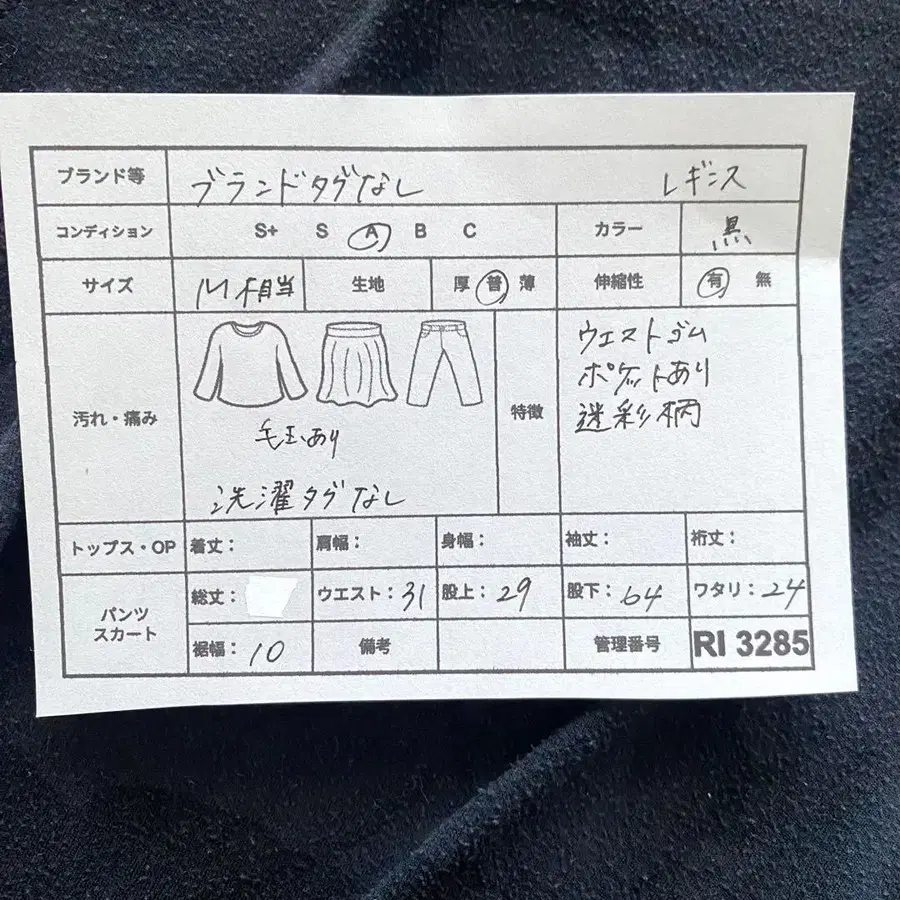 ブランド等 ブランドタグなし レギンス
コンディション S+ S A B C カラー 黒
サイズ M相当 生地 厚 普 薄 伸縮性 有 無
汚れ・痛み 毛玉あり 洗濯タグなし
特徴 ウエストゴム
ポケットあり
迷彩柄
トップス・OP 着丈: 肩幅: 身幅: 袖丈: 裄丈:
パンツ
スカート
総丈: ウエスト: 31 股上: 29 股下: 64 ワタリ: 24
裾幅: 10 備考 管理番号 RI 3285